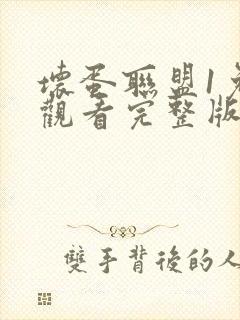 壞蛋聯盟1免
觀看完整版
雙手背後的人